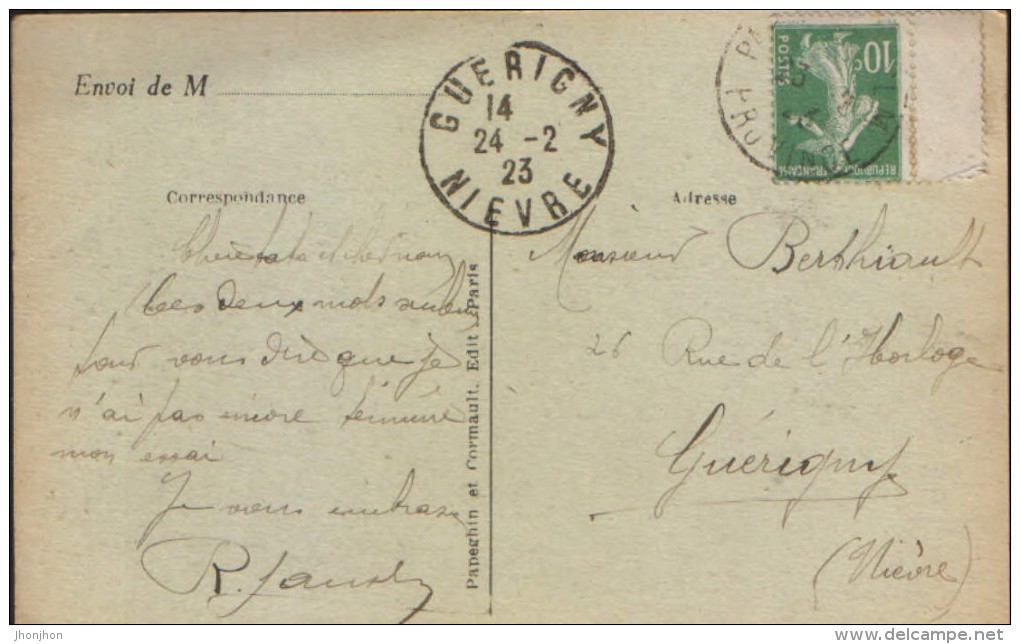 Envoi de M
GUERIGNY
14
24 - 2
23
NIEVRE
10c
POSTES
REPUBLIQUE FRANÇAISE
Correspondance
Chère tata et
Ces deux mots
pour vous dire que je
n'ai pas encore terminé
mon essai
Je vous embrasse
R.
Papeghin et Cormault. Edit. Paris
Adresse
Monsieur Berthiault
26 Rue de l'Horloge
Guérigny
(Nièvre)
jhonjhon
delcampe.net